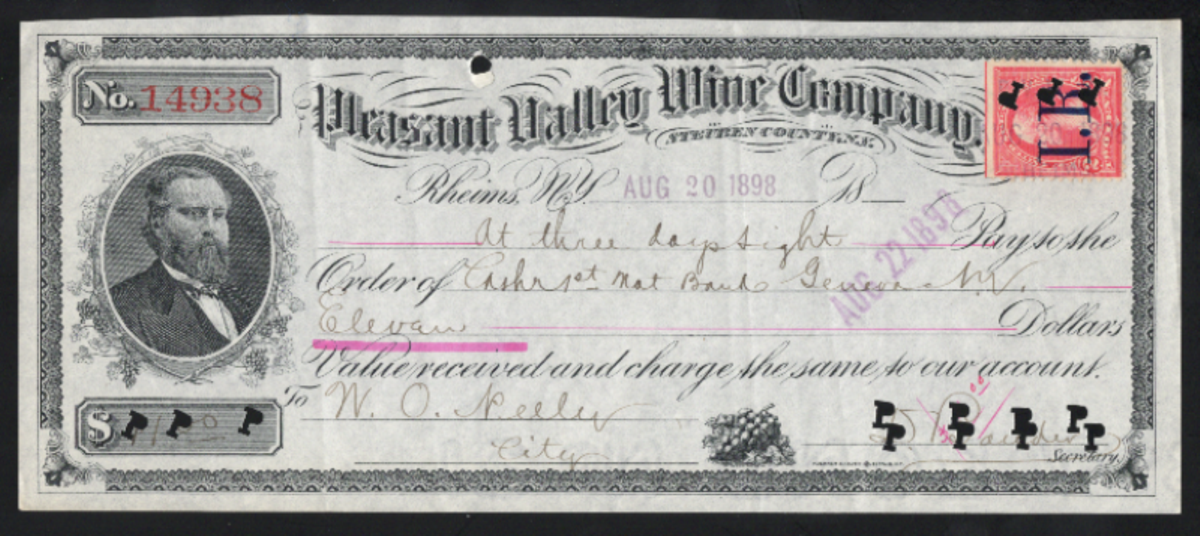 No. 14938
Pleasant Valley Wine Company,
STEUBEN COUNTY, N.Y.
I.R.
Rheims, N.Y. AUG 20 1898 18
At three days sight Pay to the
AUG 22 1898
Order of Cashr 1st Nat Bank Geneva N.Y.
Elevan Dollars
Value received and charge the same to our account.
To W. O. Neeley
City
$
Secretary.